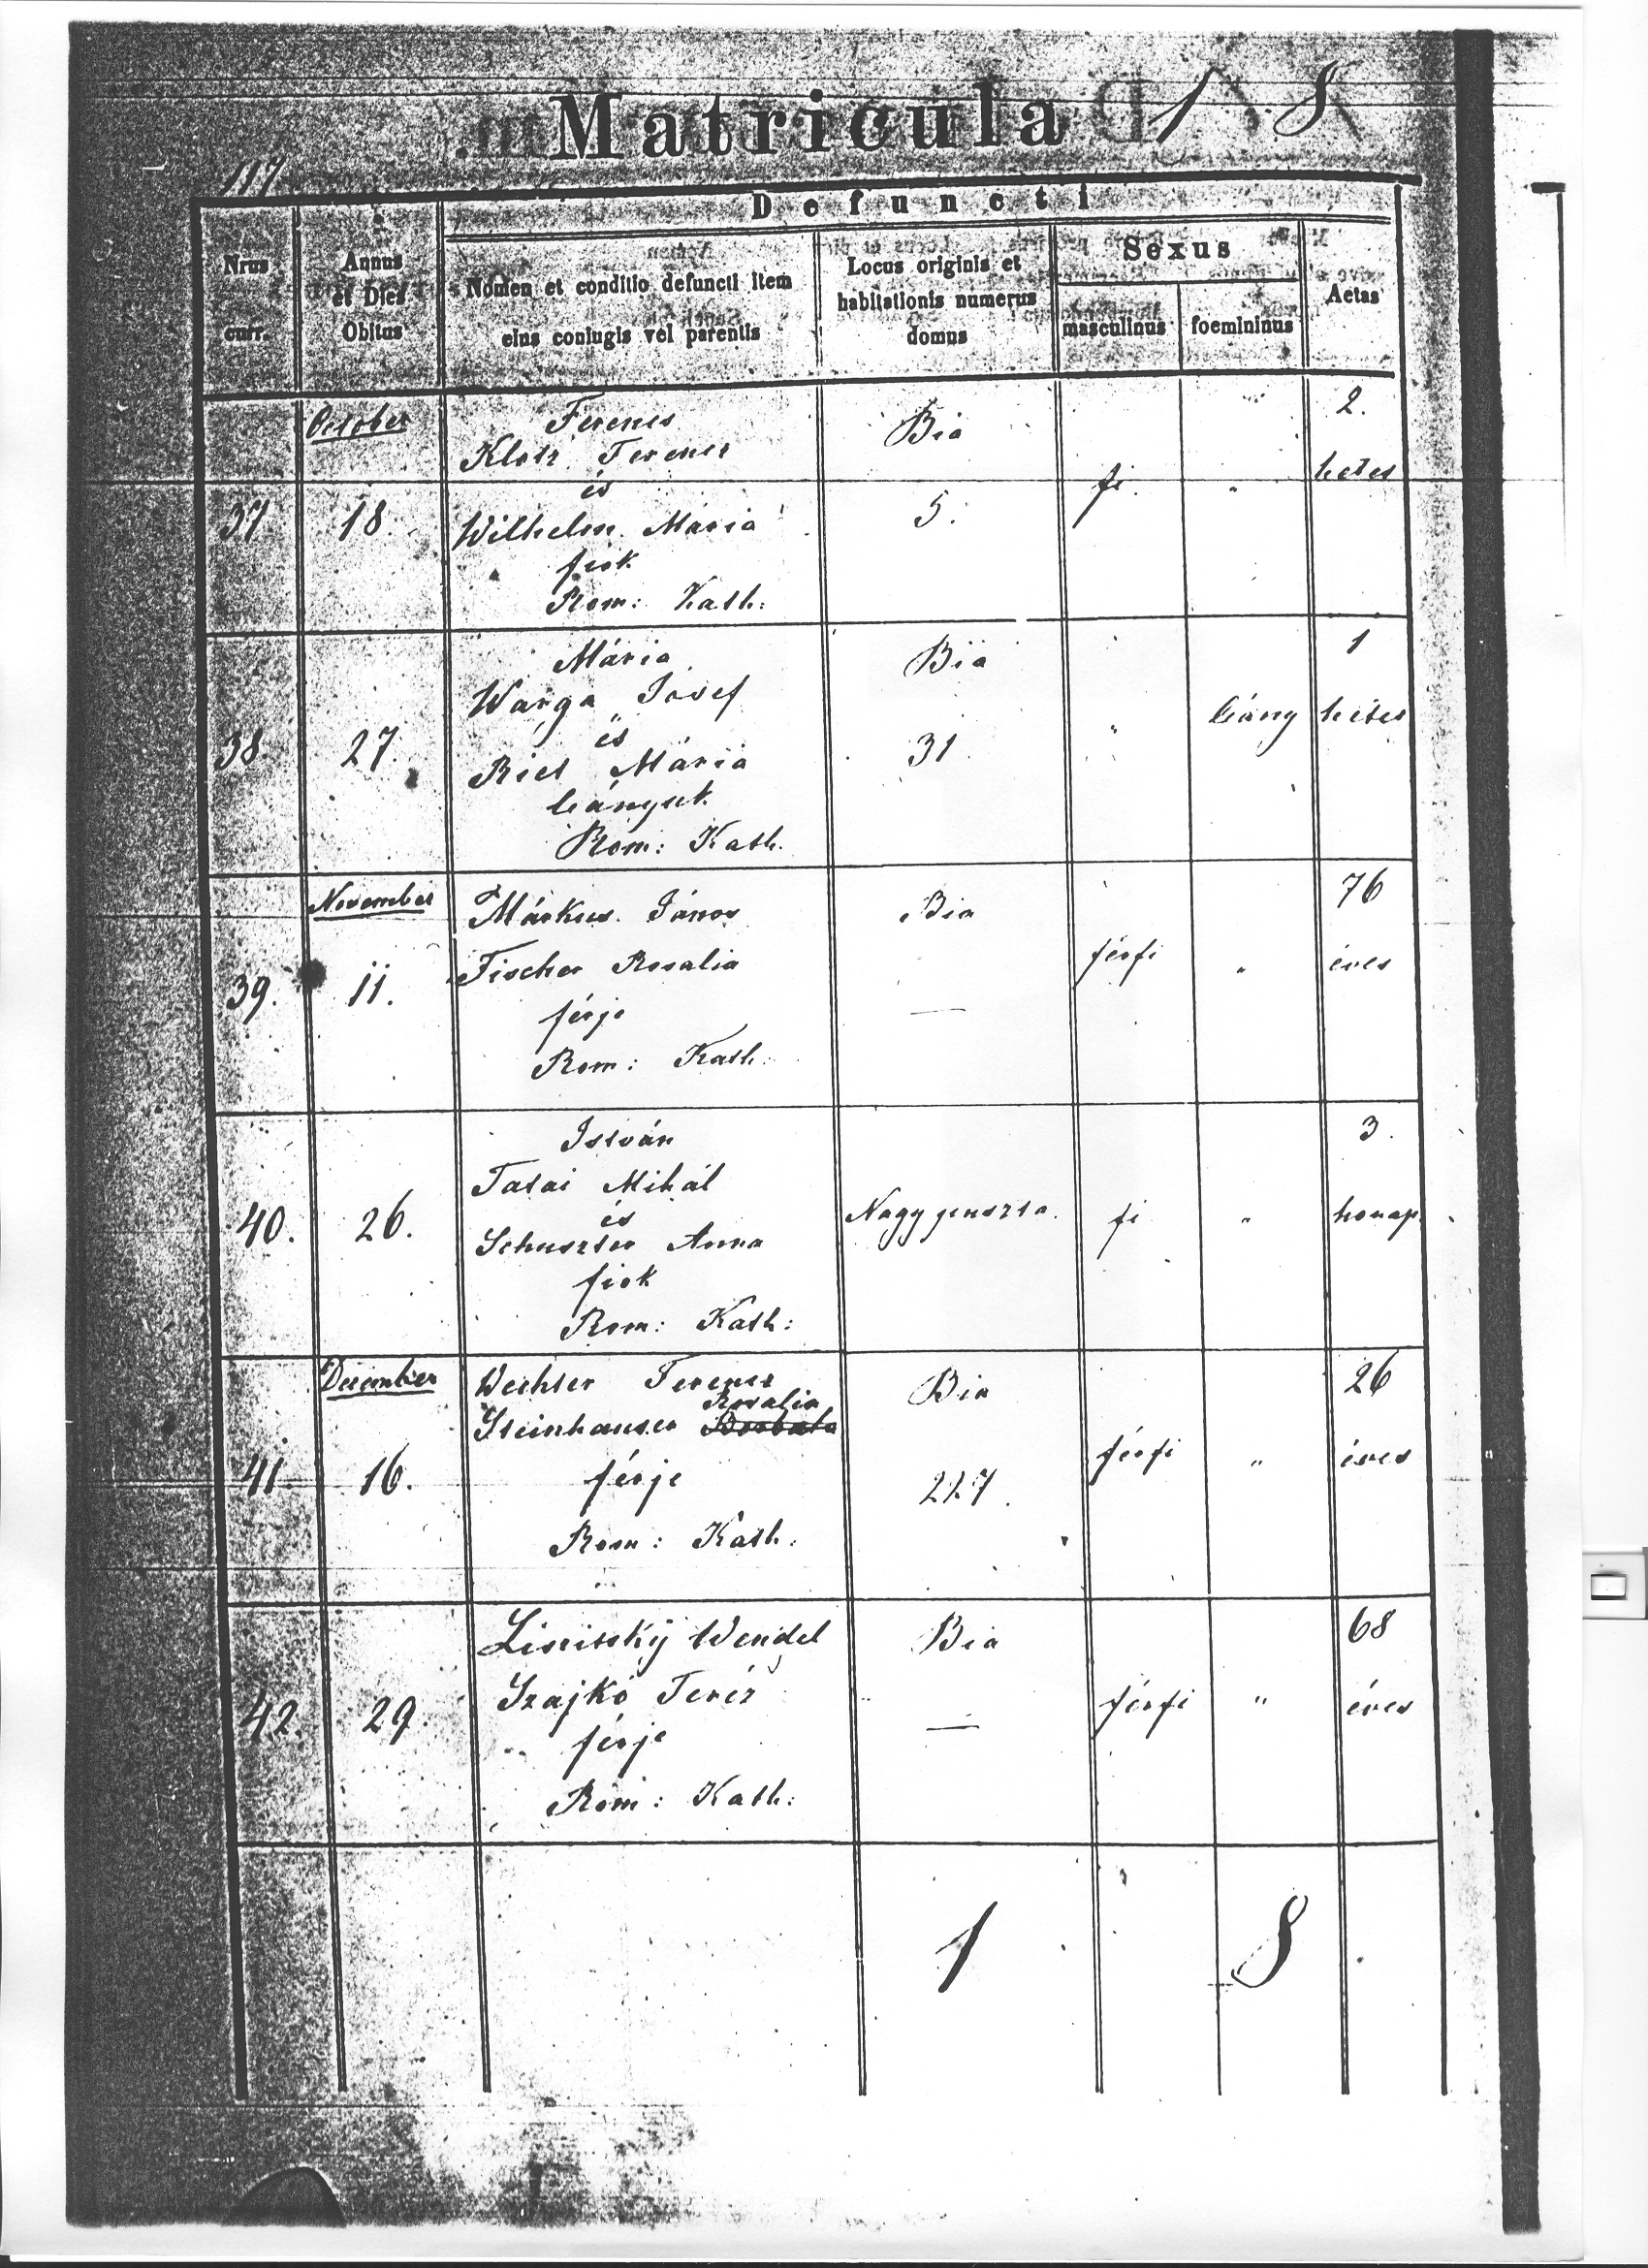 Matricula 1 8
117
Defuncti
Nrus curr.
Annus et Dies Obitus
Nomen et conditio defuncti item eius coniugis vel parentis
Locus originis et habitationis numerus domus
Sexus
masculinus
foemininus
Aetas
October
Ferencz
Bia
2.
Klotz Ferencz
hetes
és
fi.
"
37
18.
Wilhelm Mária
5.
fiok
Rom: Kath:
Mária
Bia
1
Warga Josef
leány
hetes
és
"
38.
27.
Riel Mária
31
leányuk
Rom: Kath.
November
Márkus János
Bia
76
Fischer Rosalia
férfi
"
éves
39.
11.
férje
—
Rom: Kath:
István
3.
Tatai Mihál
és
Nagy puszta.
fi
"
honap
40.
26.
Schuszter Anna
fiok
Rom: Kath:
December
Wechter Ferencz
Bia
26
Rosalia
Steinhauser Borbala
férfi
"
éves
41.
16.
férje
227.
Rom: Kath:
Wendel
Bia
68
Szajkó Teréz
férfi
"
éves
42.
29.
férje
—
Rom: Kath:
1 8